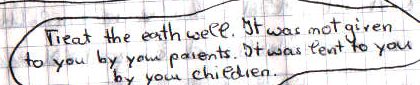 Treat the earth well. It was not given
to you by your parents. It was lent to you
by your children.